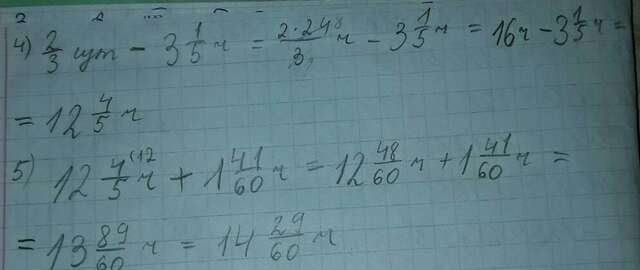 4) 2/3 сут - 3 1/5 ч = 2·24⁸/3₁ ч - 3 1/5 ч = 16ч - 3 1/5 ч =
= 12 4/5 ч
5) 12 4/5⁽¹² ч + 1 41/60 ч = 12 48/60 ч + 1 41/60 ч =
= 13 89/60 ч = 14 29/60 ч